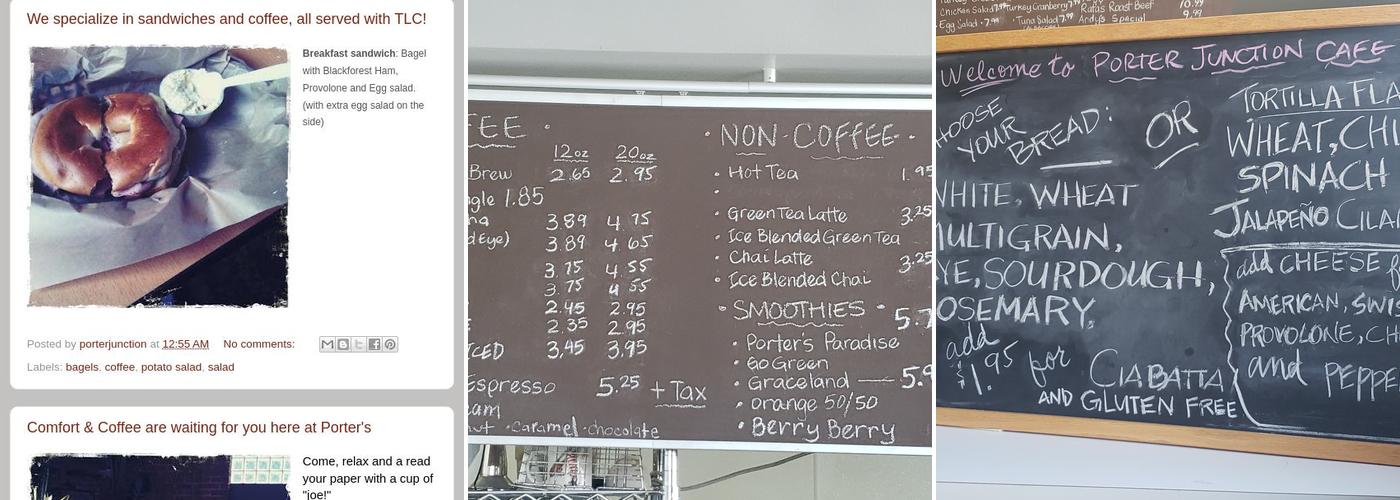 We specialize in sandwiches and coffee, all served with TLC!
Breakfast sandwich: Bagel
with Blackforest Ham,
Provolone and Egg salad.
(with extra egg salad on the
side)
Posted by porterjunction at 12:55 AM No comments:
Labels: bagels, coffee, potato salad, salad
Comfort & Coffee are waiting for you here at Porter's
Come, relax and a read
your paper with a cup of
"joe!"
12oz 20oz
Brew 2.65 2.95
1.85
3.89 4.75
Eye) 3.89 4.65
3.75 4.55
3.75 4.55
2.45 2.95
2.35 2.95
3.45 3.95
Espresso 5.25 + Tax
Caramel · chocolate
· NON-COFFEE ·
· Hot Tea 1.95
· Green Tea Latte 3.25
· Ice Blended Green Tea
· Chai Latte 3.25
· Ice Blended Chai
· SMOOTHIES ·
· Porter's Paradise
· Go Green
· Graceland
· Orange 50/50
· Berry Berry
Chicken Salad 7.99 Turkey Cranberry 7.99 Rafas Roast Beef 10.99
· Egg Salad · 7.99 · Tuna Salad 7.99 Andy's Special 9.99
Welcome to PORTER JUNCTION CAFE
YOUR
BREAD:
OR
WHITE, WHEAT
MULTIGRAIN,
SOURDOUGH,
ROSEMARY,
add
$1.95 for CIABATTA
AND GLUTEN FREE
TORTILLA
WHEAT,
SPINACH
JALAPEÑO
add CHEESE
AMERICAN,
PROVOLONE,
and